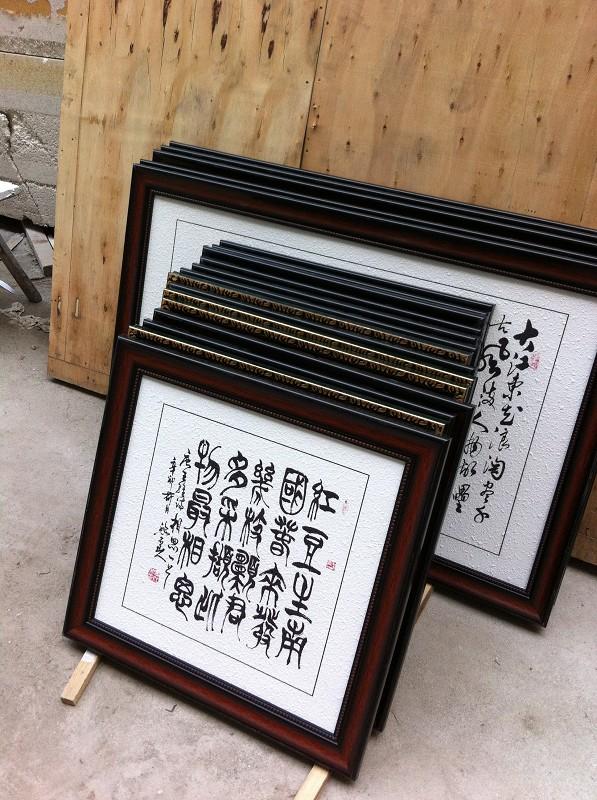 紅豆生南
國春來發
幾枝願君
多采擷此
物最相思
唐王維詩相思一首
大江東去浪淘盡千
古風流人物故壘